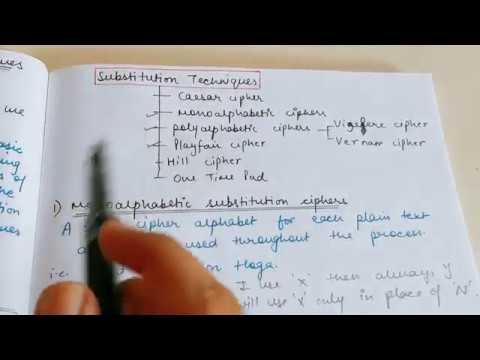 Substitution Techniques
Caesar cipher
Monoalphabetic ciphers
Polyalphabetic ciphers
Vigenere cipher
Vernam cipher
Playfair cipher
Hill cipher
One Time Pad
1) Monoalphabetic substitution ciphers
A cipher alphabet for each plain text
used throughout the process.
i.e. hoga.
I use 'x' then always I
will use 'x' only in place of 'N'.
ues
we
asic
ing
s of
ne
tion
ques